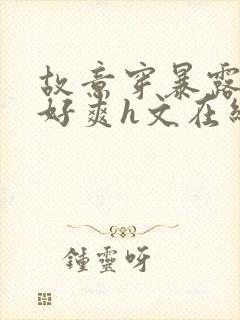 故意穿暴露
好爽h文在
鍾靈呀